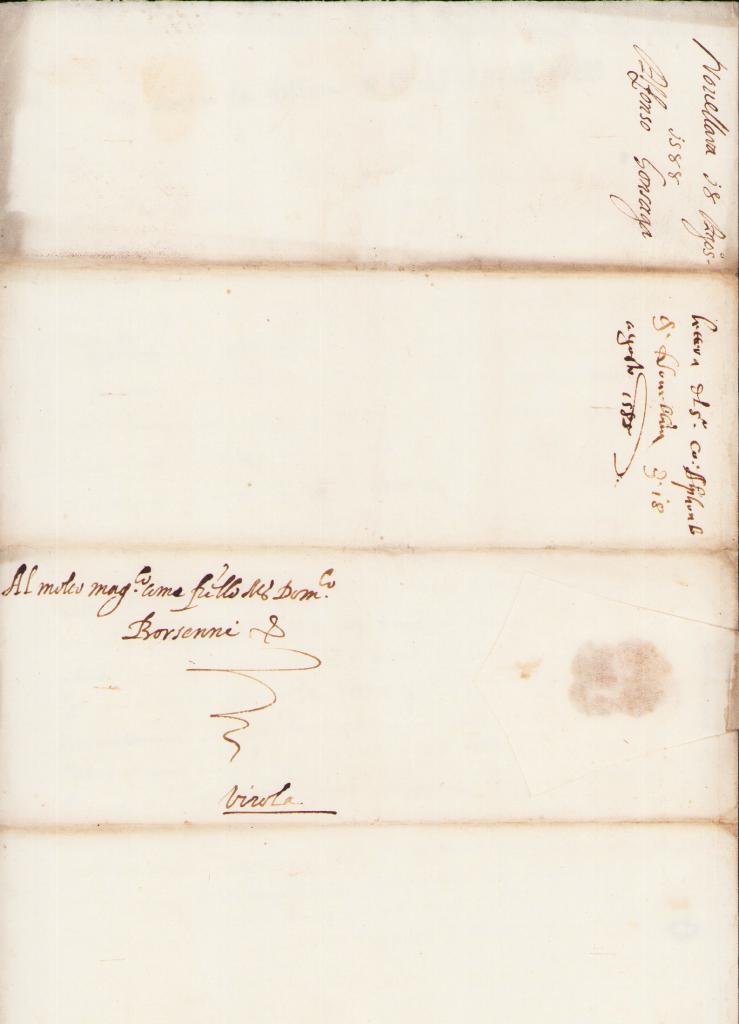 Novellara 18 Agos-
1588
Alfonso Gonzaga
lettera del s.r Co: Alphonso
di Novellara di 18
agosto 1588
Al molto mag.co come fr'ello M Dom.co
Borsenni &
Virola